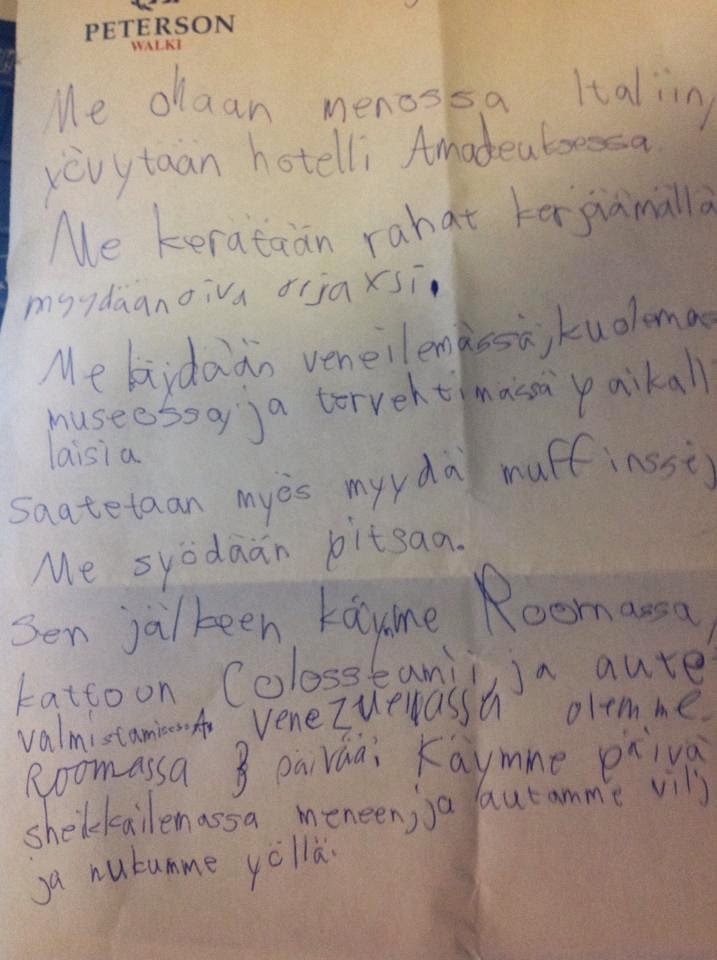 PETERSON
WALKI
Me ollaan menossa Italiin,
yövytään hotelli Amadeuksessa.
Me kerätään rahat kerjäämällä
myydään oiva orjaksi.
Me käydään veneilemässä, kuolemas
museossa, ja tervehtimässä paikall
laisia.
saatetaan myös myydä muffinssej
Me syödään pitsaa.
Sen jälkeen käymme Roomassa,
kattoon Colosseamii, ja aute
valmistamisessA venezuelassa olemme
Roomassa 3 päivää. Käymme päivä
sheikkailemassa meneen, ja autamme vilj
ja nukumme yöllä.